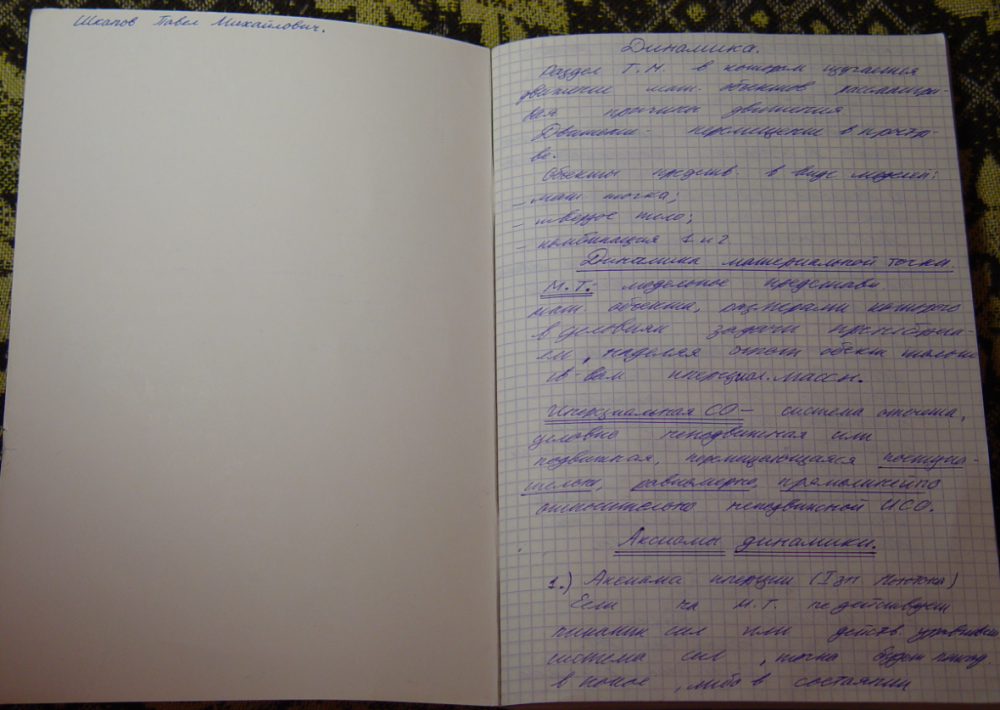 Шкапов Павел Михайлович.
Динамика.
Раздел Т.М. в котором изучается
движение мат. объектов рассматри-
вая причины движения
Движение - перемещение в простр-
ве.
Объекты представ. в виде моделей:
- мат точка;
- твердое тело;
- комбинация 1 и 2
Динамика материальной точки.
М.Т.: модельное представл.
мат. объекта, размерами которого
в условиях задачи пренебрега-
ем, наделяя этот объект только
св-вом инерциал. массы.
Инерциальная СО - система отсчета,
условно неподвижная или
подвижная, перемещающаяся поступа-
тельно, равномерно, прямолинейно
относительно неподвижной ИСО.
Аксиомы динамики.
1.) Аксиома инерции (I зн Ньютона)
Если на М.Т. не действует
никаких сил или действ. уравновеш
система сил, точка будет наход
в покое, либо в состоянии